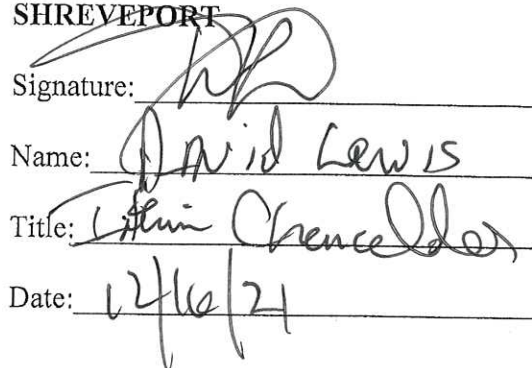 SHREVEPORT
Signature:
Name: David Lewis
Title: Interim Chancellor
Date: 12/16/21